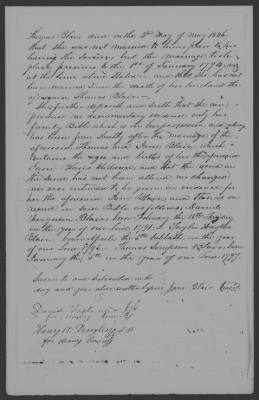 Thomas Blair died on the 3rd Day of May 1826.
that she was not married to him prior to his
leaving the Service, but the marriage took
place previous to the 1st of January 1794, viz
at the time above Stated. and that she has not
been married since the death of her husband the
aforesaid Thomas Blair.
She further deposeth and saith that she can
produce no documentary evidence only her
family Bible which is in her possession and
has been from shortly after the marriage of the
aforesaid Thomas and Jane Blair which
contains the ages and births of her
Jane Blair's children, and that the record in
the same has not been altered nor changed
nor ever intended to be given in evidence for
her the aforesaid Jane Blair and stands on
record in said Bible as follows, Daniel
Ferguson Blair, born February the 18th
in the year of our Lord 1791. Taylor
Blair born April the Sabbath in the year
of our Lord Thomas Simpson Blair born
January the in the year of our Lord 1797.
Sworn to and Subscribed on the
day and year above written before Jane Blair
David
for county
Henry
for county